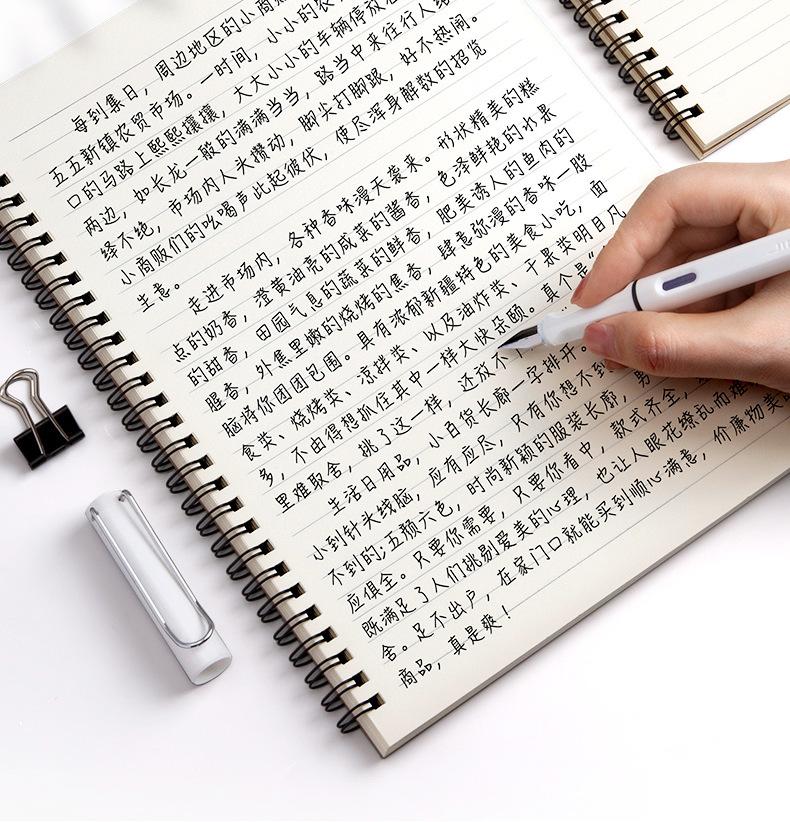 每到集日，周边地区的小商
五五新镇农贸市场。一时间，小小的农
口的马路上熙熙攘攘，大大小小的车辆停放在
两边，如长龙一般的满满当当，路当中来往行人络
绎不绝，市场内人头攒动，脚尖打脚跟，好不热闹。
小商贩们的吆喝声此起彼伏，使尽浑身解数的招览
生意。
走进市场内，各种香味漫天袭来。形状精美的糕
点的奶香，澄黄油亮的咸菜的酱香，色泽鲜艳的水果
的甜香，田园气息的蔬菜的鲜香，肥美诱人的鱼肉的
腥香，外焦里嫩的烧烤的焦香，肆意弥漫的香味一股
脑将你团团包围。具有浓郁新疆特色的美食小吃，面
食类、烧烤类、凉拌类、以及油炸类、干果类明目凡
多，不由得想抓住其中一样大快朵颐。真个是“
里难取舍，挑了这一样，还放不
生活日用品，小百货长廊一字排开。
小到针头线脑，应有应尽，只有你想不到
不到的;五颜六色，时尚新颖的服装长廓，男
应俱全。只要你需要，只要你看中，款式齐全，
既满足了人们挑剔爱美的心理，也让人眼花缭乱而难
舍。足不出户，在家门口就能买到顺心满意，价廉物美
商品，真是爽！